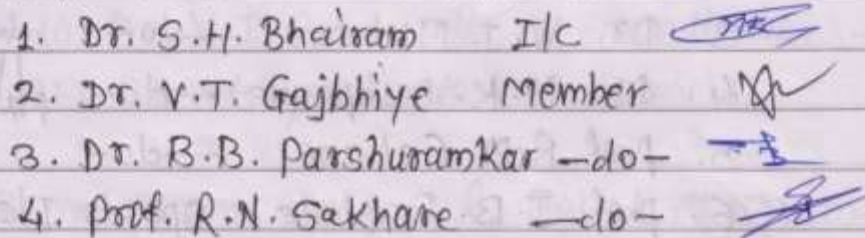 1. Dr. S.H. Bhairam I/C
2. Dr. V.T. Gajbhiye Member
3. Dr. B.B. Parshuramkar —do—
4. Prof. R.N. Sakhare —do—